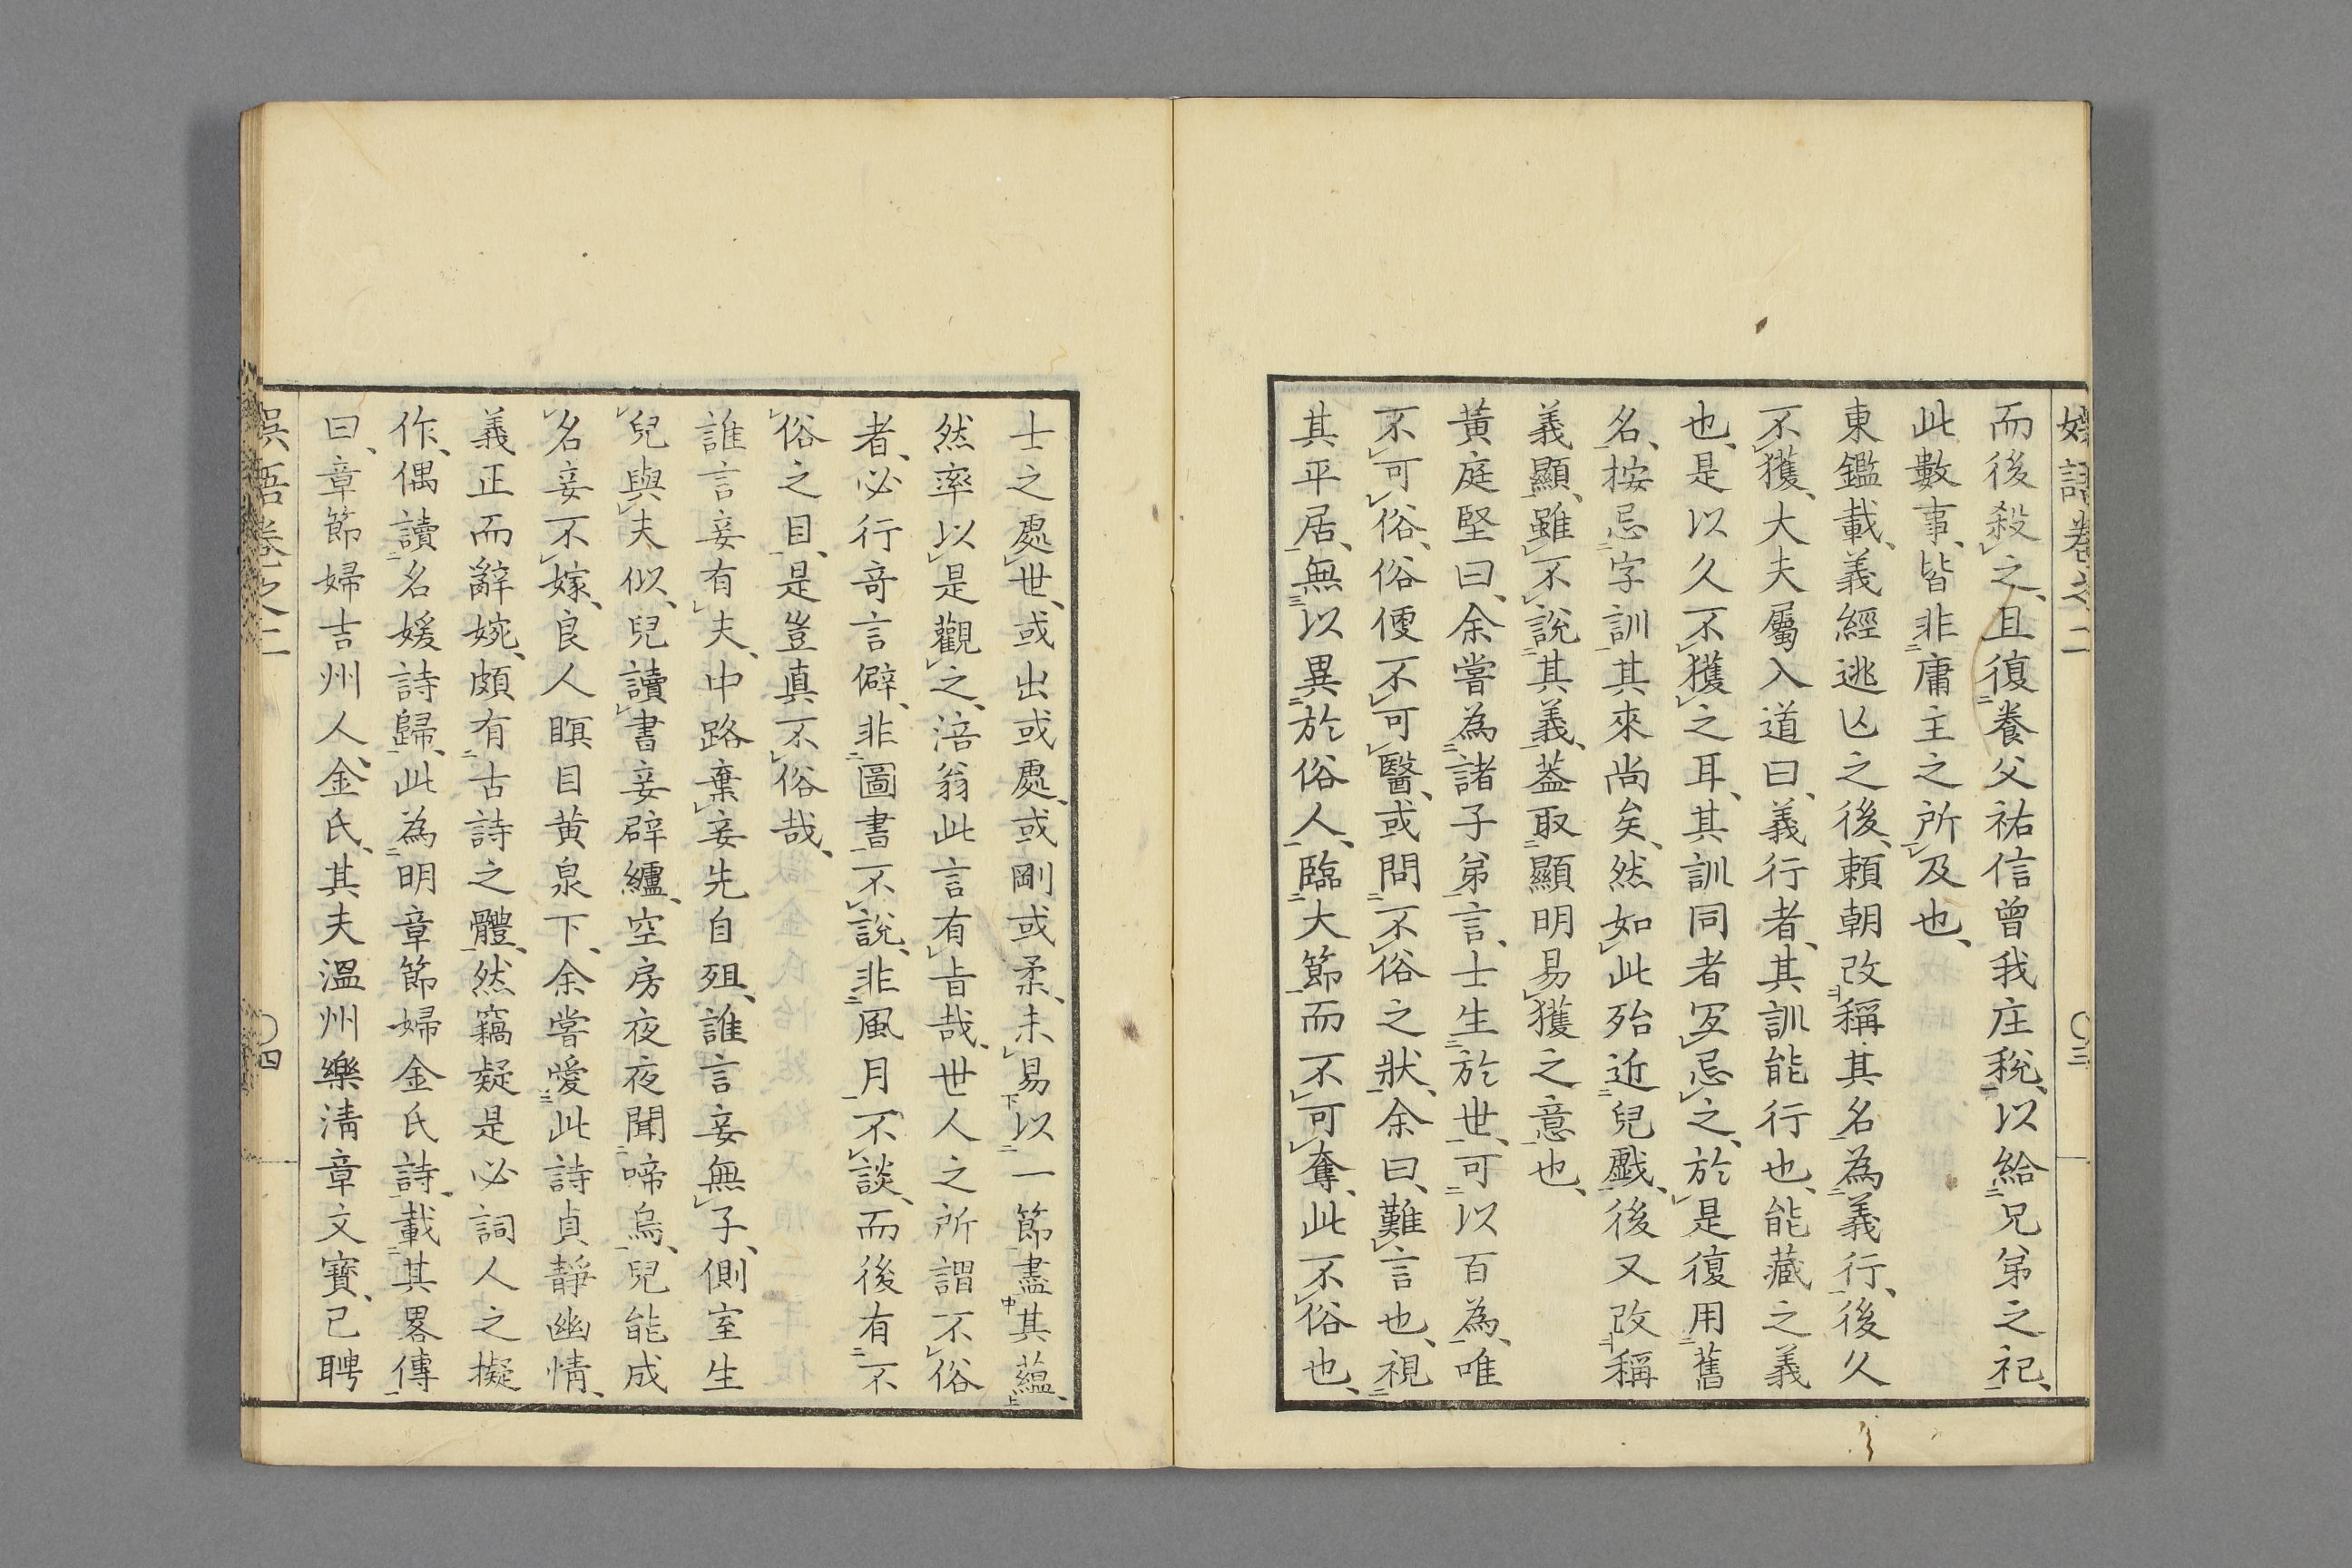 語卷之二
〇三
而後殺之、且復養父祐信曾我庄稅、以給兄弟之祀、
此數事、皆非庸主之所及也、
東鑑載、義經逃亾之後、賴朝改稱其名為義行、後久
不獲、大夫屬入道曰、義行者、其訓能行也、能藏之義
也、是以久不獲之耳、其訓同者冝忌之、於是復用舊
名、按忌字訓其來尚矣、然如此殆近兒戱、後又改稱
義顯、雖不說其義、葢取顯明易獲之意也、
黃庭堅曰、余嘗為諸子弟言、士生於世、可以百為、唯
不可俗、俗便不可醫、或問不俗之狀、余曰、難言也、視
其平居、無以異於俗人、臨大節而不可奪、此不俗也、
士之處世、或出或處、或剛或柔、未易以一節盡其蘊、
然率以是觀之、涪翁此言有㫖哉、世人之所謂不俗
者、必行奇言僻、非圖書不說、非風月不談、而後有不
俗之目、是豈真不俗哉、
誰言妾有夫、中路棄妾先自殂、誰言妾無子、側室生
兒與夫似、兒讀書妾辟纑、空房夜夜聞啼烏、兒能成
名妾不嫁、良人瞑目黄泉下、余嘗愛此詩貞靜幽情、
義正而辭婉、頗有古詩之體、然竊疑是必詞人之擬
作、偶讀名媛詩歸、此為明章節婦金氏詩、載其畧傳
曰、章節婦吉州人、金氏、其夫溫州樂淸章文寶、已聘
吳語卷之二
〇四